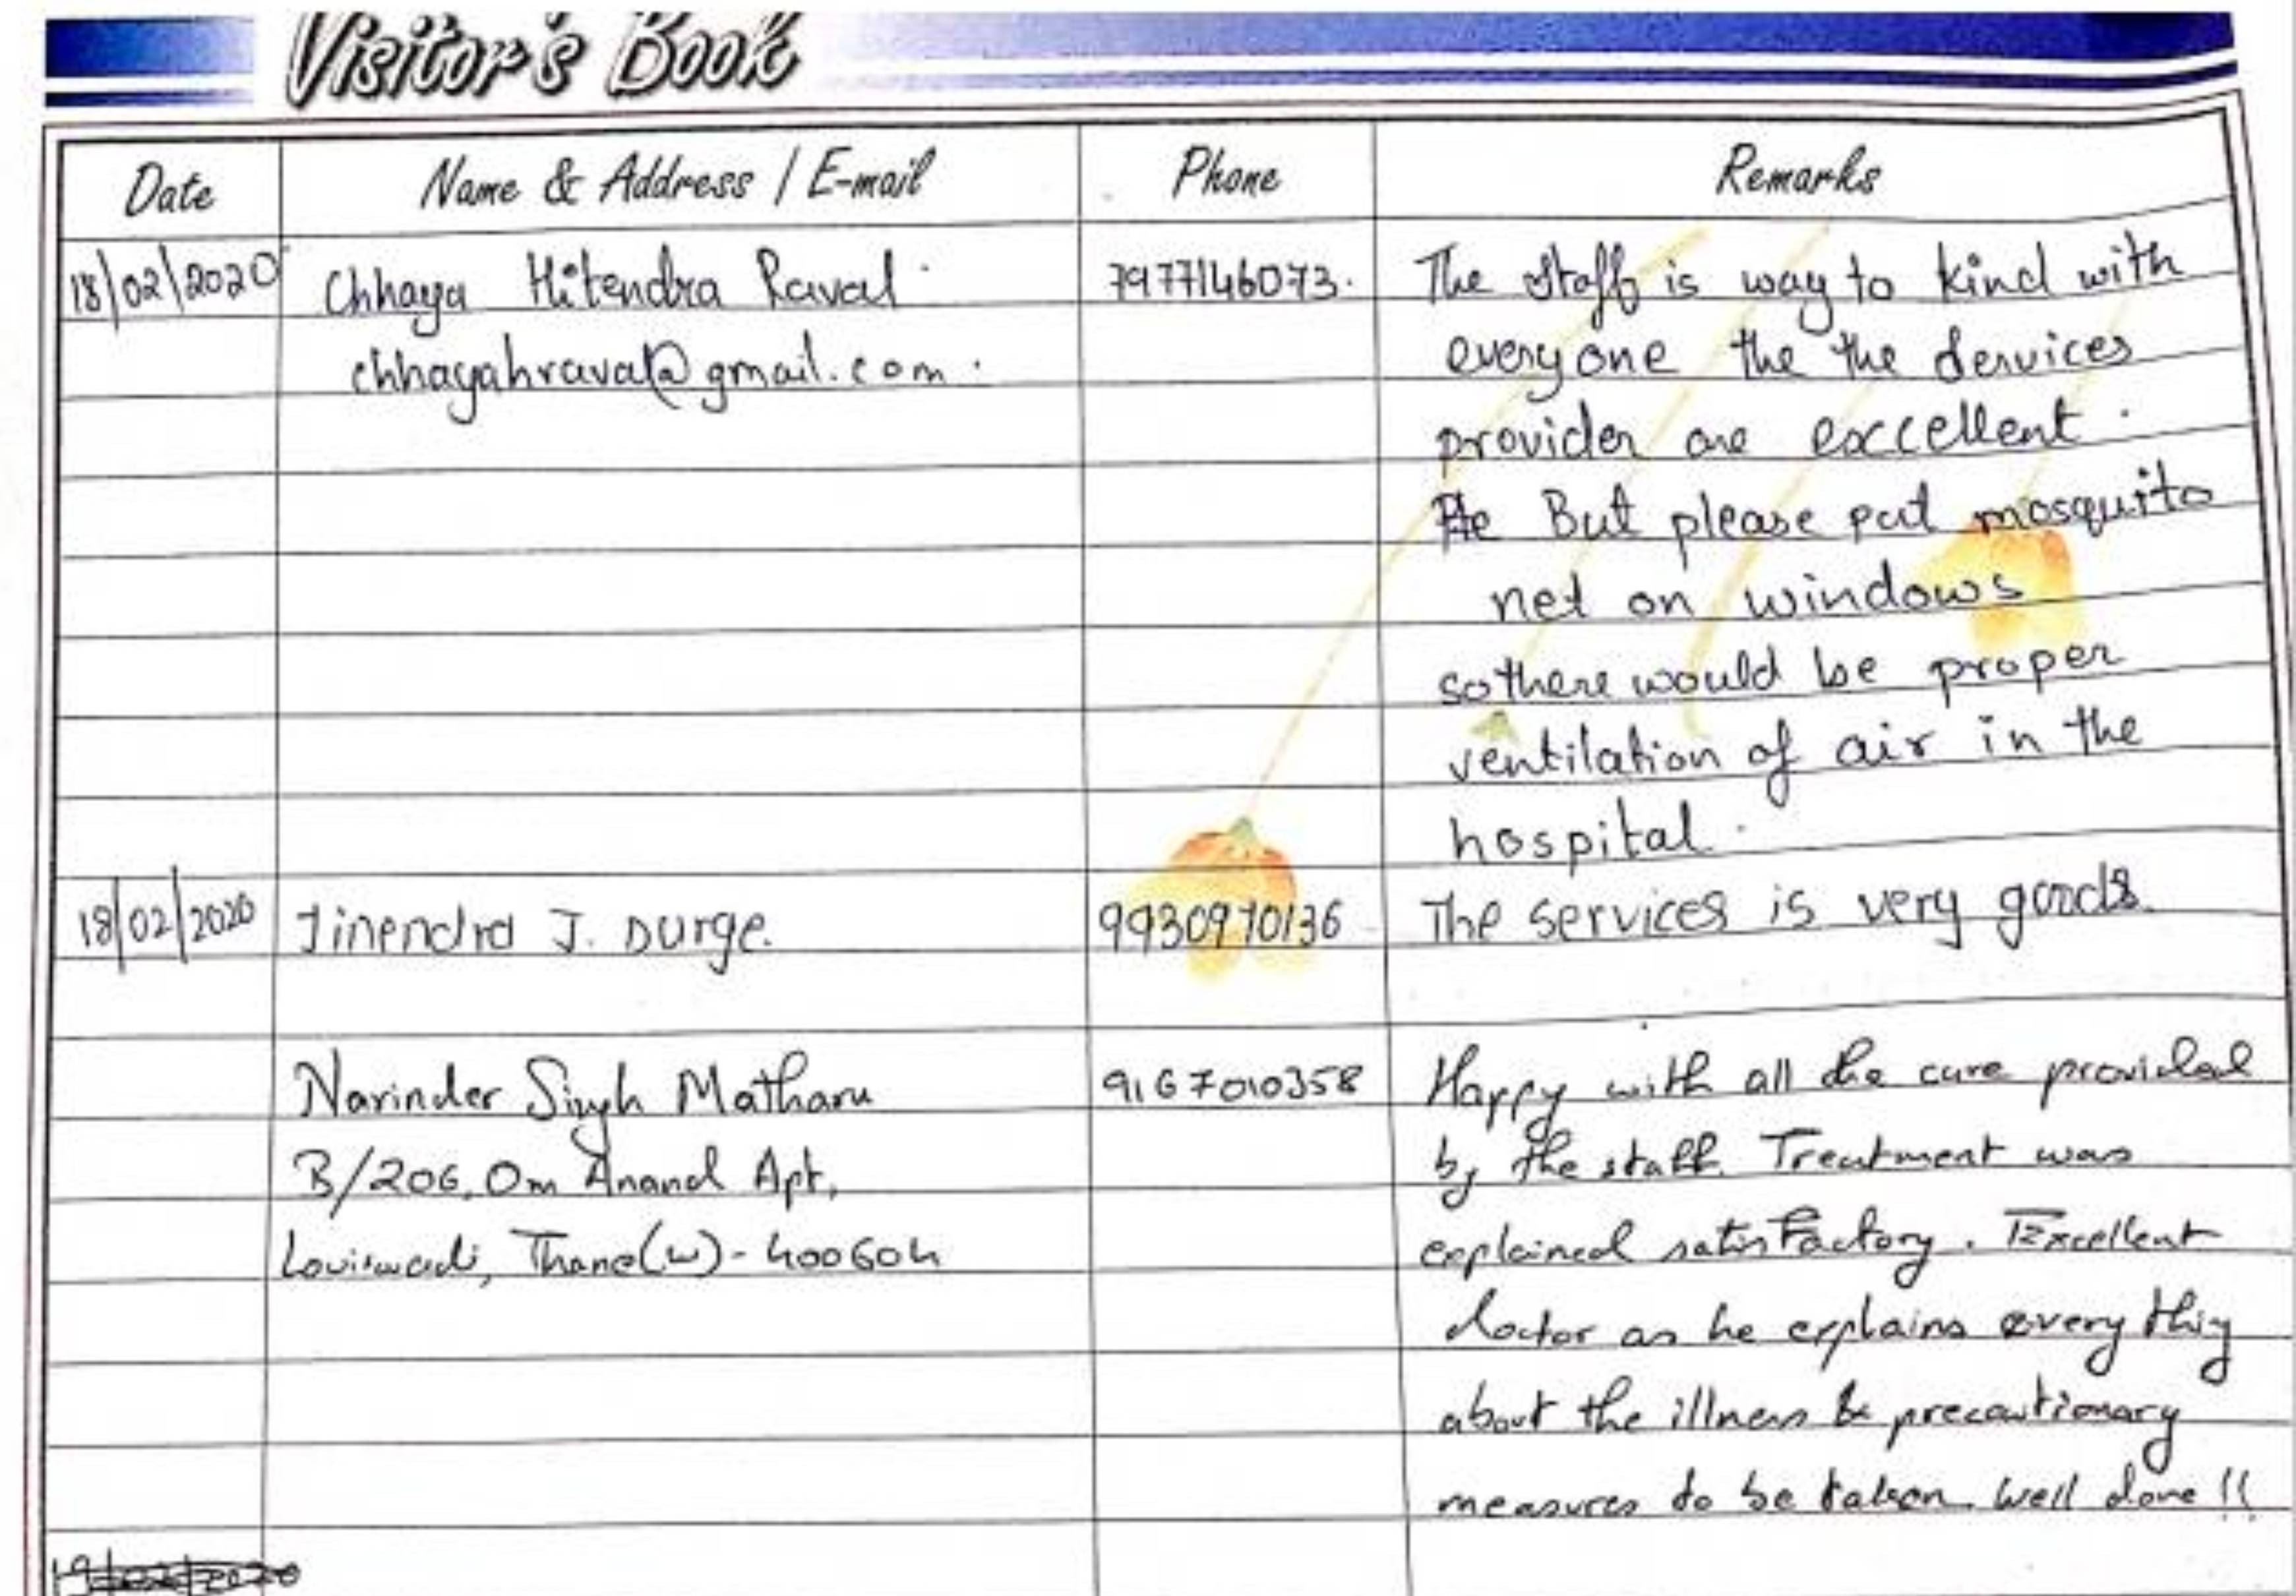 Visitor's Book
Date Name & Address / E-mail Phone Remarks
18/02/2020 Chhaya Hitendra Raval. 7977146073. The staff is way to kind with
chhayahraval@gmail.com. everyone the the services
provider are excellent.
But please put mosquito
net on windows
so there would be proper
ventilation of air in the
hospital.
18/02/2020 Jinendra J. Durge. 9930970136 The services is very goods.
Narinder Singh Matharu 9167010358 Happy with all the care provided
B/206, Om Anand Apt, by the staff. Treatment was
Louiswadi, Thane(W)-400604 explained satisfactory. Excellent
doctor as he explains every thing
about the illness & precautionary
measures to be taken. Well done!!